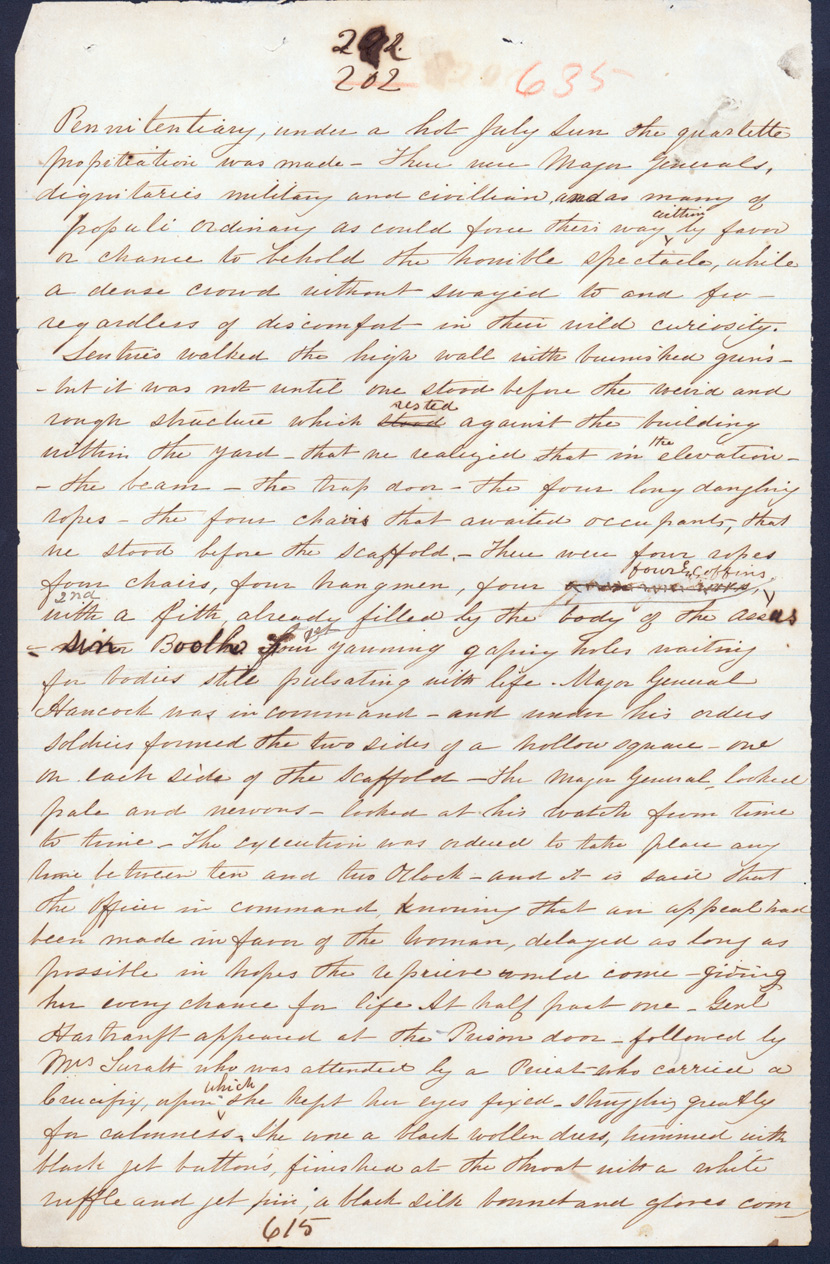 202.
202 635
Pennitentiary, under a hot July Sun the quartette
propitiation was made - There were Major Generals,
dignitaries military and civillian and as many of
populi ordinary as could force their way within by favor
or chance to behold the horrible spectacle, while
a dense crowd without swayed to and fro -
regardless of discomfort in their wild curiosity.
Sentries walked the high wall with burnished guns -
- but it was not until one stood before the weird and
rough structure which stood rested against the building
within the yard - that we realized that in the elevation -
- the beam - the trap door - the four long dangling
ropes - the four chairs that awaited occupants, that
we stood before the scaffold. - There were four ropes
four chairs, four hangmen, four four coffins,
2nd
with a fifth already filled by the body of the assas
- sin Booth. four yet yawning gaping holes waiting
for bodies still pulsating with life. Major General
Hancock was in command - and under his orders
soldiers formed the two sides of a hollow square - one
on each side of the scaffold - the Major General, looked
pale and nervous - looked at his watch from time
to time - The execution was ordered to take place any
time between ten and two O'Clock - and it is said that
the Officer in command, knowing that an appeal had
been made in favor of the woman, delayed as long as
possible in hopes the reprieve would come - giving
her every chance for life. At half past one - Genl
Hartranft appeared at the Prison door - followed by
Mrs Suratt who was attended by a Priest who carried a
Crucifix, upon which she kept her eyes fixed - struggling greatly
for calmness. She wore a black wollen dress, trimmed with
black jet buttons, finished at the throat with a white
ruffle and jet pin; a black silk bonnet and gloves com-
615